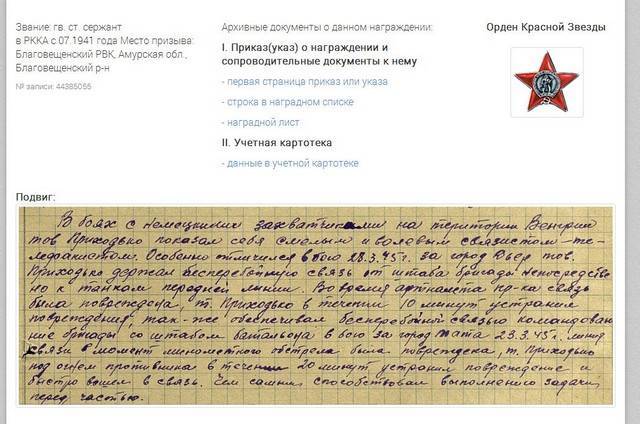 Звание: гв. ст. сержант
в РККА с 07.1941 года Место призыва:
Благовещенский РВК, Амурская обл.,
Благовещенский р-н
№ записи: 44385055
Архивные документы о данном награждении:
I. Приказ(указ) о награждении и
сопроводительные документы к нему
- первая страница приказ или указа
- строка в наградном списке
- наградной лист
II. Учетная картотека
- данные в учетной картотеке
Орден Красной Звезды
Подвиг:
В боях с немецкими захватчиками на територии Венгрии
тов Приходько показал себя смелым и волевым связистом-те-
лефанистом. Особенно отличился в бою 28.3.45г. за город Дьер тов.
Приходько держал бесперебойную связь от штаба бригады непосредстве
но к танкам передней линии. Во время артналета пр-ка связь
была повреждена, т. Приходько в течении 10 минут устранил
повреждения, так-же обеспечивал бесперебойной связью командован
ие бригады со штабом батальона в бою за город Тата 23.3.45г. линия
связи в момент минометного обстрела была повреждека, т. Приходько
под огнем противника в течении 20 минут устранил повреждение и
быстро вошел в связь. Чем самим способствовал выполнению задачи
перед частью.